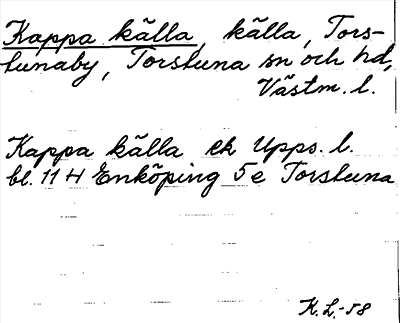 Kappa källa, källa, Tors-
tunaby, Torstuna sn och hd,
Västm. l.
Kappa källa ek Upps. l.
bl. 11 H Enköping 5 e Torstuna
K. L. -58